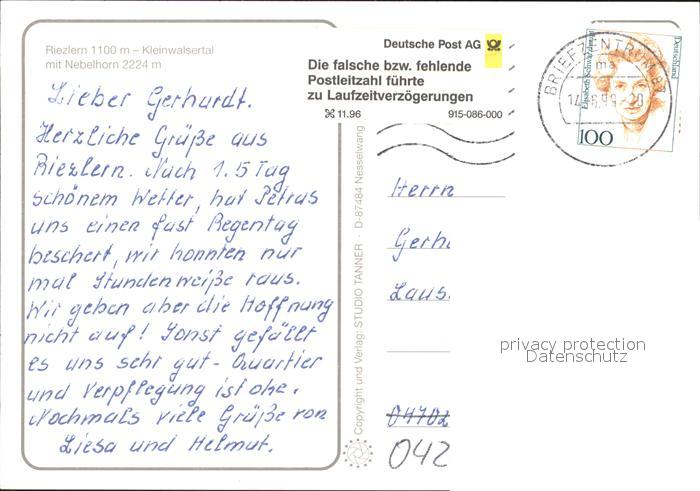 Riezlern 1100 m – Kleinwalsertal
mit Nebelhorn 2224 m
Lieber Gerhardt.
Herzliche Grüße aus
Riezlern. Nach 1.5 Tag
schönem Wetter, hat Petrus
uns einen fast Regentag
beschert, wir konnten nur
mal Stundenweiße raus.
Wir geben aber die Hoffnung
nicht auf! Sonst gefällt
es uns sehr gut - Quartier
und Verpflegung ist oke.
Nochmals viele Grüße von
Liesa und Helmut.
Copyright und Verlag: STUDIO TANNER · D-87484 Nesselwang
Deutsche Post AG
Die falsche bzw. fehlende
Postleitzahl führte
zu Laufzeitverzögerungen
11.96 915-086-000
BRIEFZENTRUM 87
Deutschland
100
Herrn
Gerh
Laus
04702
042
privacy protection
Datenschutz